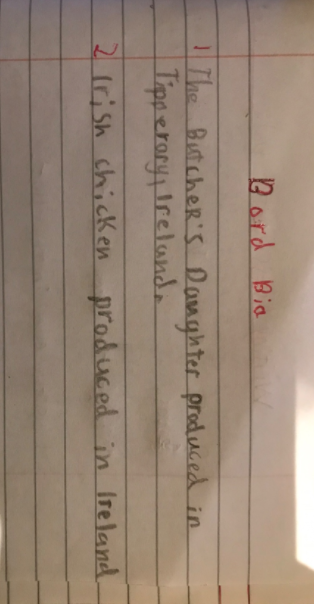 Bord Bia
1 The Butcher's Daughter produced in
Tipperary, Ireland.
2 Irish chicken produced in Ireland